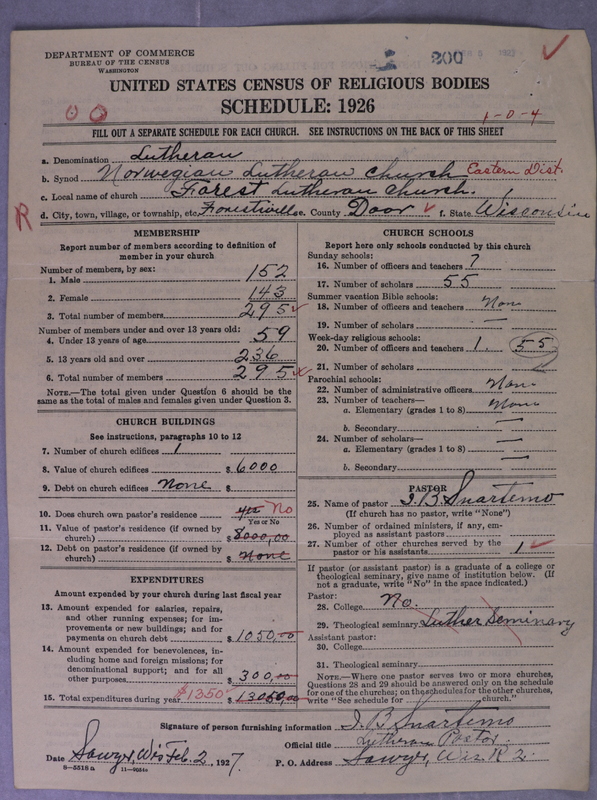 DEPARTMENT OF COMMERCE
BUREAU OF THE CENSUS
WASHINGTON
UNITED STATES CENSUS OF RELIGIOUS BODIES
SCHEDULE: 1926
1-0-4
FILL OUT A SEPARATE SCHEDULE FOR EACH CHURCH. SEE INSTRUCTIONS ON THE BACK OF THIS SHEET
a. Denomination Lutheran
b. Synod Norwegian Lutheran Church Eastern Dist.
c. Local name of church Forest Lutheran Church.
R d. City, town, village, or township, etc. Forestville e. County Door f. State Wisconsin
MEMBERSHIP
Report number of members according to definition of
member in your church
Number of members, by sex:
1. Male 152
2. Female 143
3. Total number of members 295
Number of members under and over 13 years old:
4. Under 13 years of age 59
5. 13 years old and over 236
6. Total number of members 295
NOTE.—The total given under Question 6 should be the
same as the total of males and females given under Question 3.
CHURCH BUILDINGS
See instructions, paragraphs 10 to 12
7. Number of church edifices 1
8. Value of church edifices $6000
9. Debt on church edifices None $
10. Does church own pastor's residence yes No
Yes or No
11. Value of pastor's residence (if owned by
church) $5000,00
12. Debt on pastor's residence (if owned by
church) $ None
EXPENDITURES
Amount expended by your church during last fiscal year
13. Amount expended for salaries, repairs,
and other running expenses; for im-
provements or new buildings; and for
payments on church debt $1050,00
14. Amount expended for benevolences, in-
cluding home and foreign missions; for
denominational support; and for all
other purposes $300,00
15. Total expenditures during year $1350 $13050,00
CHURCH SCHOOLS
Report here only schools conducted by this church
Sunday schools:
16. Number of officers and teachers 7
17. Number of scholars 55
Summer vacation Bible schools:
18. Number of officers and teachers None
19. Number of scholars —
Week-day religious schools:
20. Number of officers and teachers 1. 55
21. Number of scholars
Parochial schools:
22. Number of administrative officers None
23. Number of teachers—
a. Elementary (grades 1 to 8) None
b. Secondary —
24. Number of scholars—
a. Elementary (grades 1 to 8) —
b. Secondary —
PASTOR
25. Name of pastor I. B. Suartemo
(If church has no pastor, write "None")
26. Number of ordained ministers, if any, em-
ployed as assistant pastors
27. Number of other churches served by the
pastor or his assistants 1
If pastor (or assistant pastor) is a graduate of a college or
theological seminary, give name of institution below. (If
not a graduate, write "No" in the space indicated.)
Pastor:
28. College No.
29. Theological seminary Luther Seminary
Assistant pastor:
30. College
31. Theological seminary
NOTE.—Where one pastor serves two or more churches,
Questions 28 and 29 should be answered only on the schedule
for one of the churches; on the schedules for the other churches,
write "See schedule for church."
Signature of person furnishing information I. B. Suartemo
Official title Lutheran Pastor
Date Sawyer, Wis Feb. 2, 1927 P. O. Address Sawyer, Wis. R 2.
8-5518 a